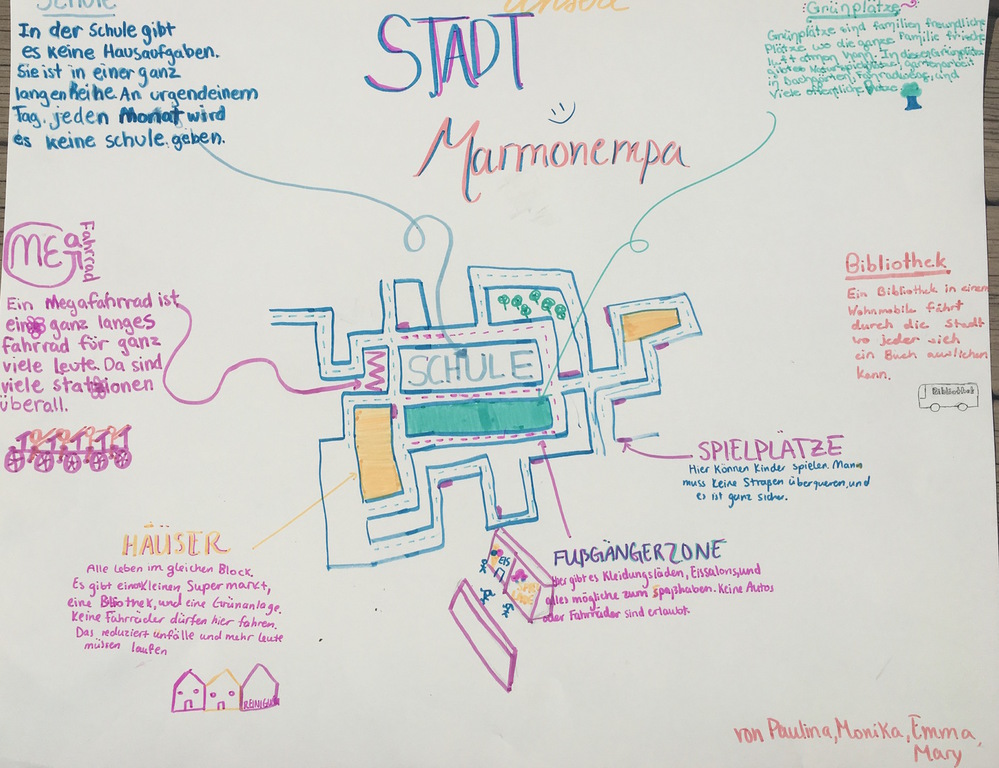 unsere
STADT
Marmonempa
Schule
In der Schule gibt
es keine Hausaufgaben.
Sie ist in einer ganz
langen Reihe. An urgendeinem
Tag, jeden Monat wird
es keine schule geben.
Grünplätze
Grünplätze sind familien freundliche
Plätze wo die ganze Familie frische
luft atmen kann. In diesen Grünplätze
gibt es Naturspielplätze, gartenarbeit
in Dachgärten, Fahrradwege, und
Viele öffentliche Plätze
MEgA
Fahrrad
Ein Megafahrrad ist
ein ganz langes
fahrrad für ganz
viele leute. Da sind
viele stationen
überall.
Bibliothek
Ein Bibliothek in einem
Wohnmobile fährt
durch die Stadt
wo jeder sich
ein Buch ausleihen
kann.
Bibliothek
SCHULE
SPIELPLÄTZE
Hier Können Kinder spielen. Mann
muss keine Straßen überqueren, und
es ist ganz sicher.
HÄUSER
Alle leben im gleichen Block.
Es gibt einen Kleinen Supermarkt,
eine Bliothek, und eine Grünanlage.
Keine Fahrräder dürfen hier fahren.
Das reduziert unfälle und mehr leute
müssen laufen
REINIGUNG
FUßGÄNGERZONE
Hier gibt es Kleidungsläden, Eissalons, und
alles mögliche zum spaßhaben. Keine Autos
oder Fahrräder sind erlaubt.
EIS
von Paulina, Monika, Emma,
Mary